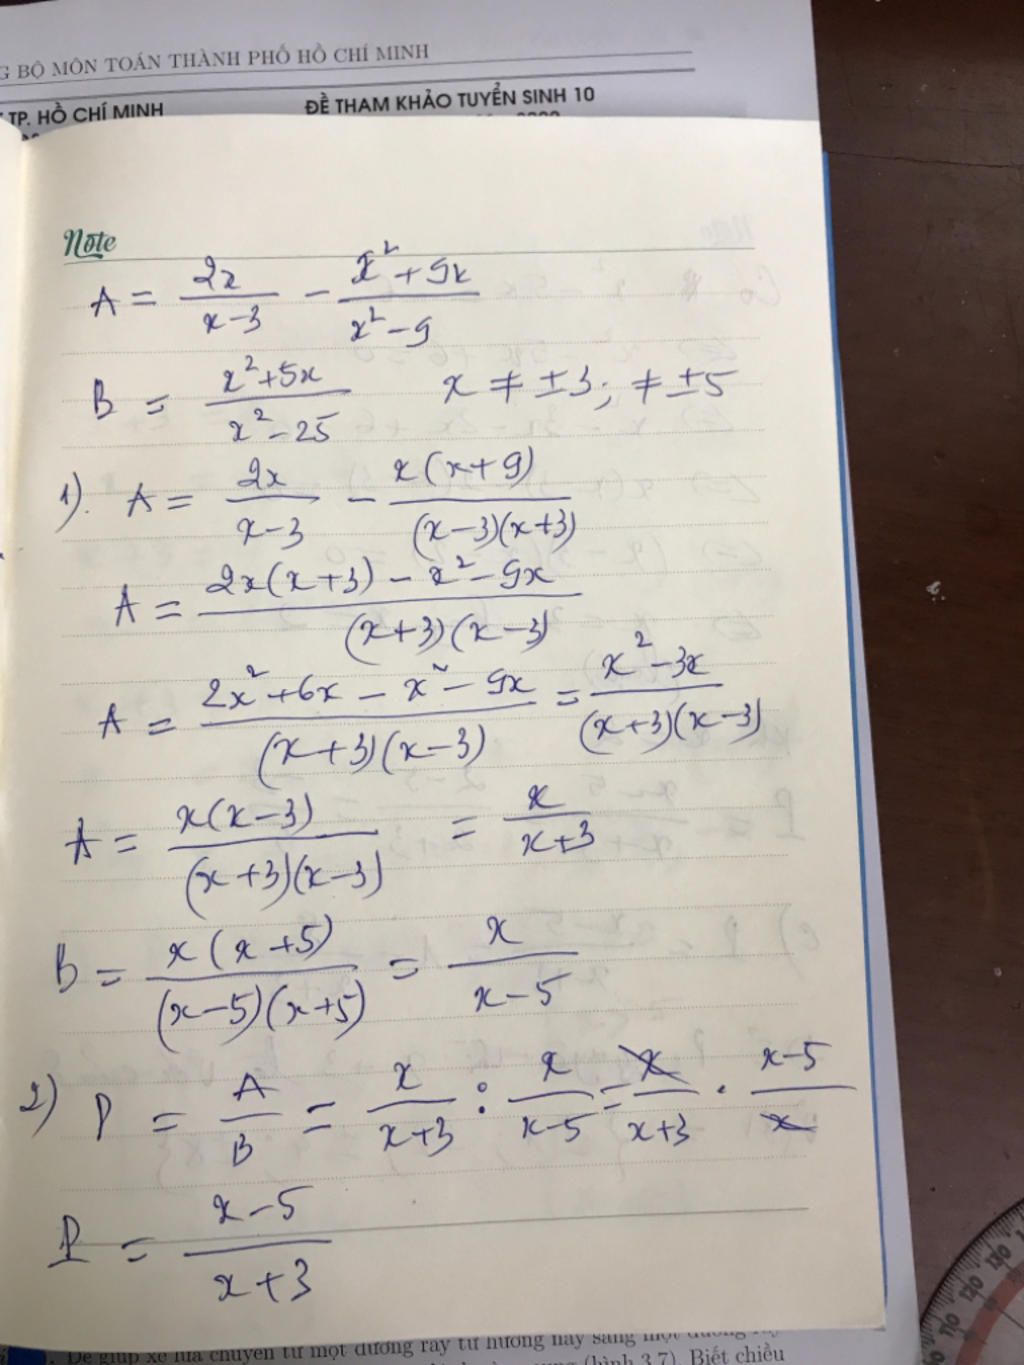 G BỘ MÔN TOÁN THÀNH PHỐ HỒ CHÍ MINH
TP. HỒ CHÍ MINH ĐỀ THAM KHẢO TUYỂN SINH 10
Note
A = 2x/(x-3) - (x²+9x)/(x²-9)
B = (x²+5x)/(x²-25) x ≠ ±3; ≠ ±5
1). A = 2x/(x-3) - x(x+9)/((x-3)(x+3))
A = (2x(x+3) - x² - 9x)/((x+3)(x-3))
A = (2x²+6x - x² - 9x)/((x+3)(x-3)) = (x²-3x)/((x+3)(x-3))
A = x(x-3)/((x+3)(x-3)) = x/(x+3)
B = x(x+5)/((x-5)(x+5)) = x/(x-5)
2) P = A/B = x/(x+3) : x/(x-5) = x/(x+3) . (x-5)/x
P = (x-5)/(x+3)
. Để giúp xe lửa chuyển từ một đường ray từ hướng này sang một đường
(hình 3.7). Biết chiều